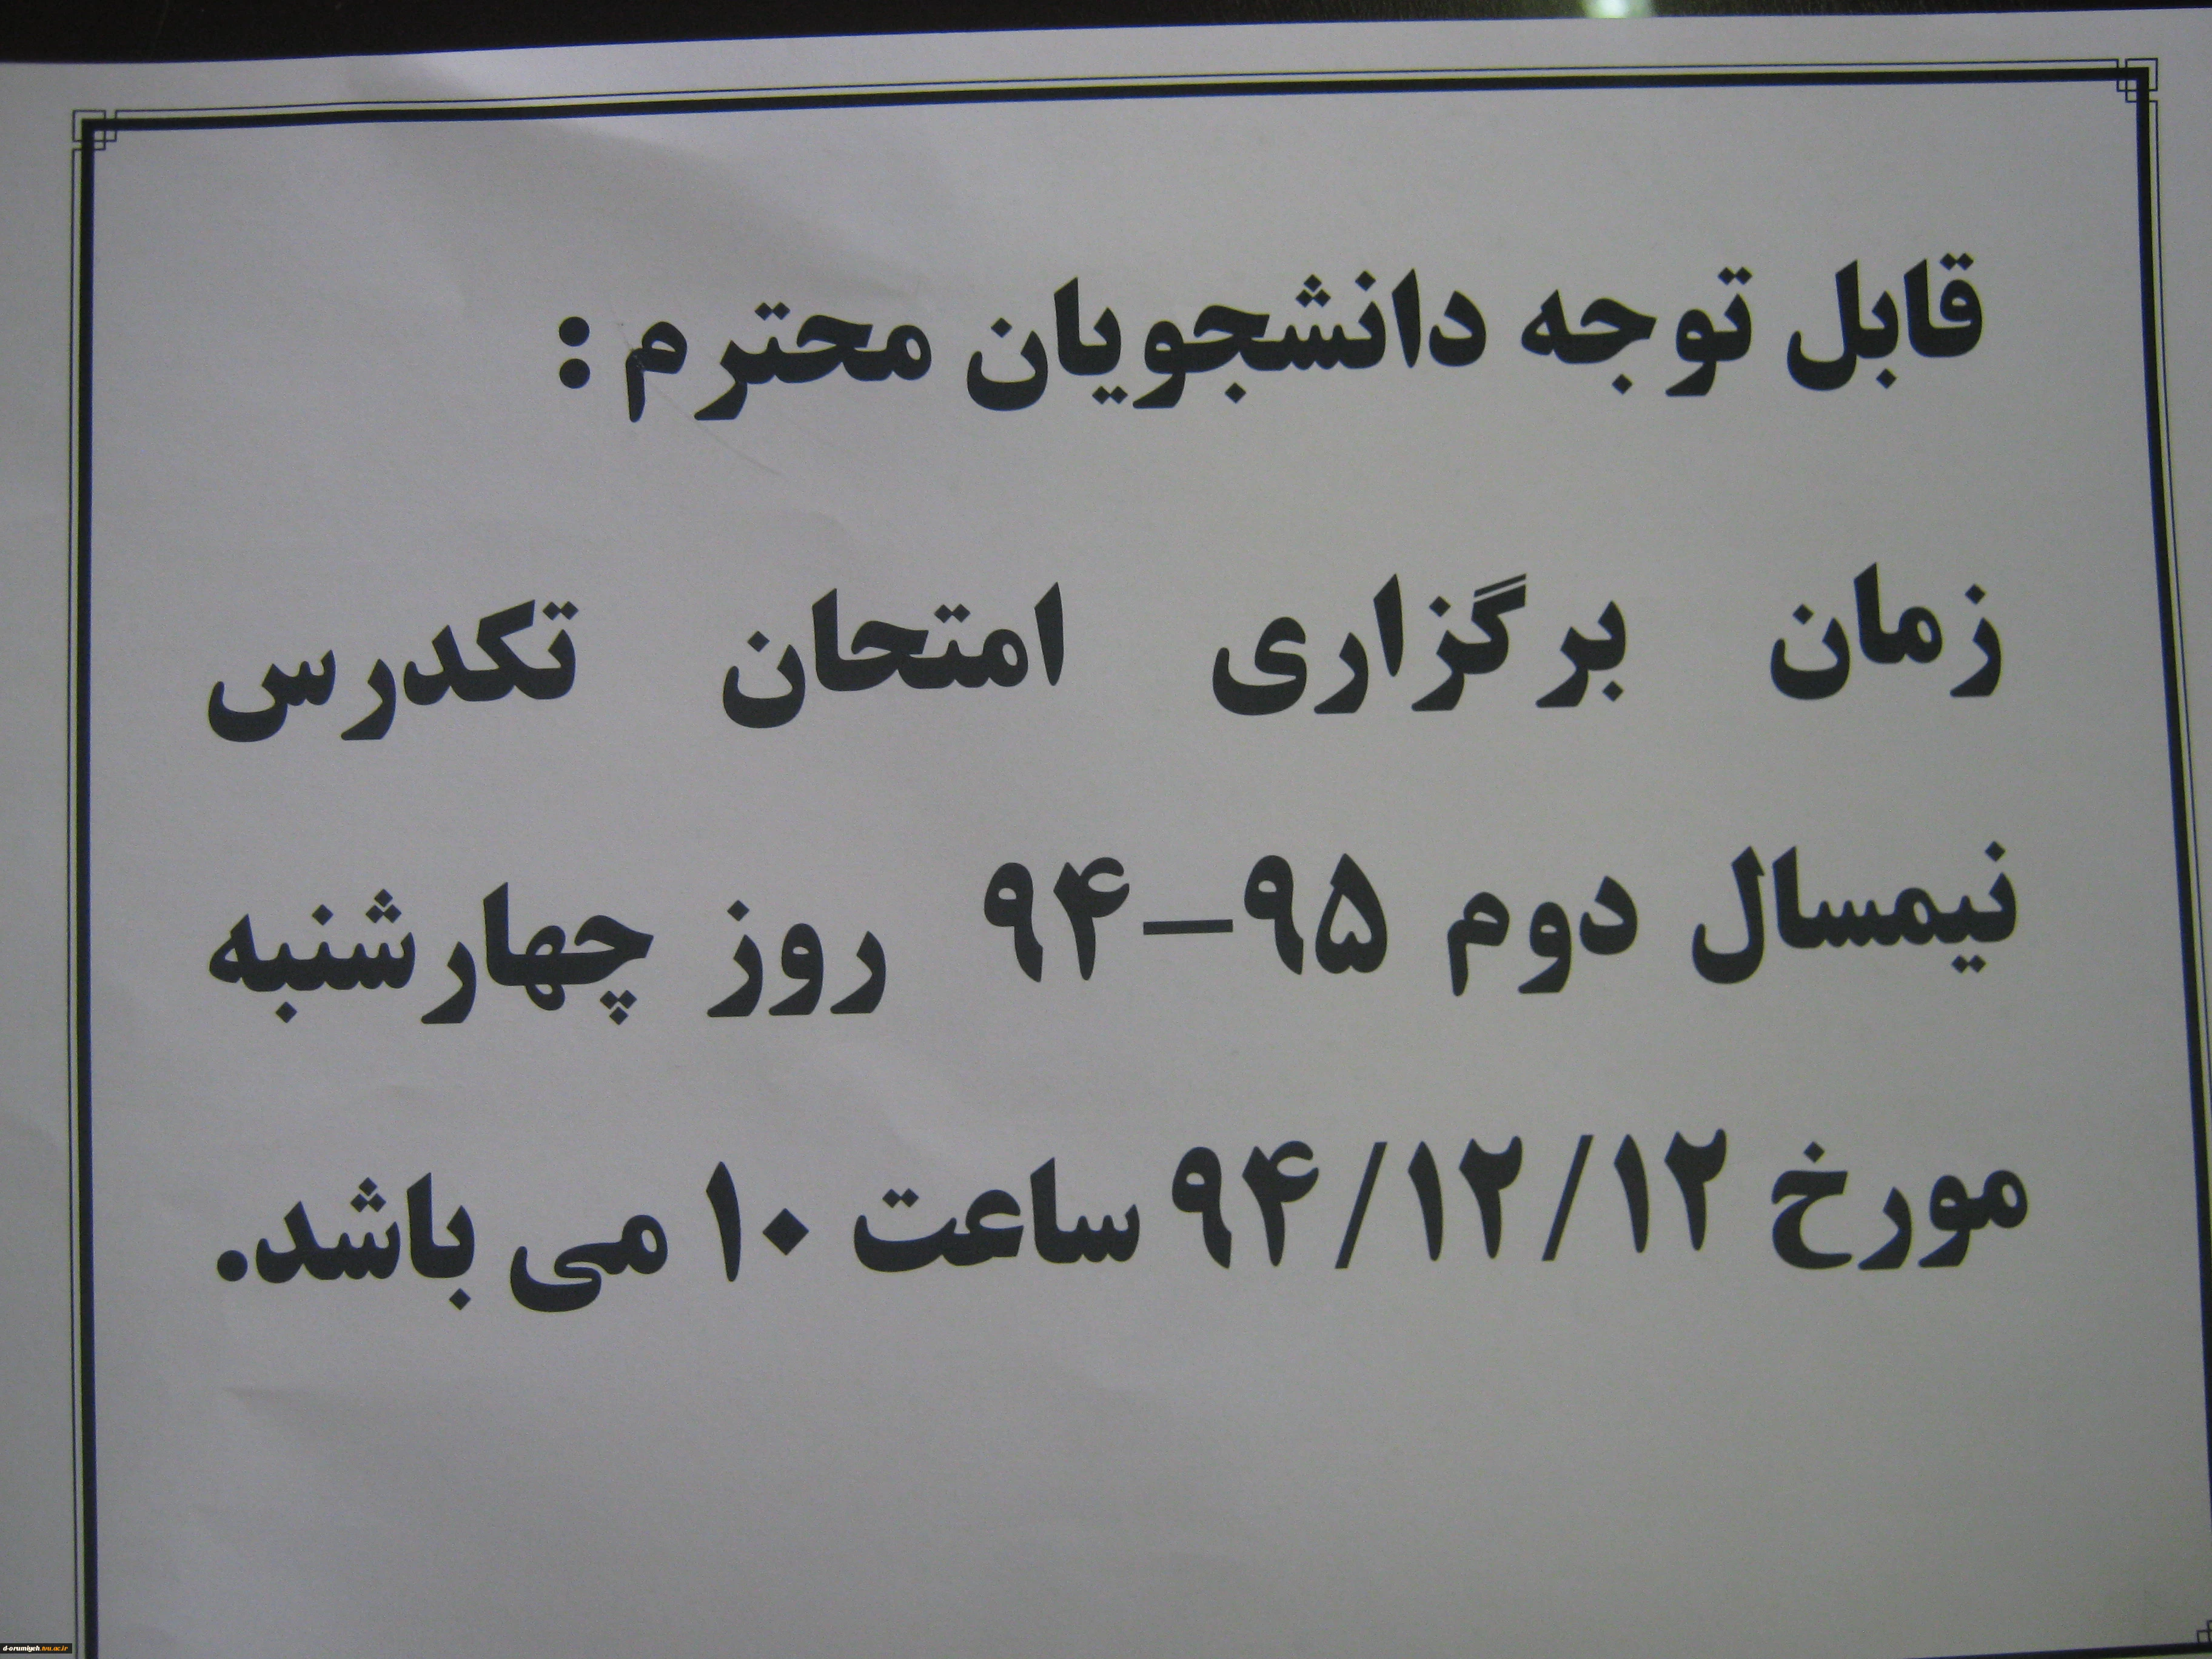 قابل توجه دانشجویان محترم :
زمان برگزاری امتحان تکدرس
نیمسال دوم ۹۵–۹۴ روز چهارشنبه
مورخ ۹۴/۱۲/۱۲ ساعت ۱۰ می باشد.
d-orumiyeh.tvu.ac.ir